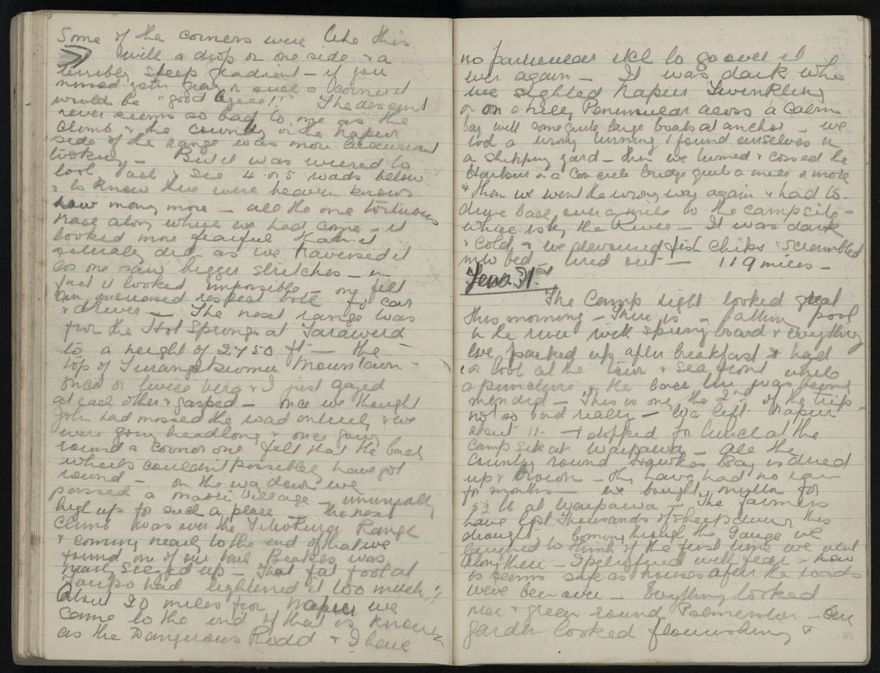 Some of the corners were like this
with a drop on one side & a
terribly steep gradient – if you
missed your gear or such a corner it
would be "good byee!!" The descent
never seems so bad to me as the
climb & the country on the Napier
side of the range was more
looking – But it was weird to
look back & see 4 or 5 roads below
& to know there were heaven knows
how many more – all the one tortuous
road along which we had come – it
looked more fearful than it
actually did as we traversed it
as one saw bigger stretches – in
fact it looked impossible – one felt
an increased respect both for car
& driver – The next range was
from the Hot Springs at Tarawera
to a height of 2450 ft – the
top of Mountain
Once or twice & I just gazed
at each other & gasped – once we thought
John had missed the road entirely & we
were going headlong & once going
round a corner one felt that the back
wheels couldn't possibly have got
round – on the way down we
passed a Maori Village – unusually
high up for such a place – the next
climb was over the Range
& coming nearly to the end of that we
found one of our Brakes was
nearly seized up – That fat fool at
Taupo had tightened it too much!
About 20 miles from Napier we
came to the end of that is known
as the Dangerous Road & I have
no particular itch to go over it
ever again – It was dark when
we sighted Napier Twinkling
on a hilly Peninsular across a calm
bay with some quite large boats at anchor – we
took a wrong turning & found ourselves in
a shipping yard – then we turned & crossed the
Harbour on a Concrete bridge quite a mile & more
& then we went the wrong way again & had to
drive back over a mile to the camp site –
which is by the River – It was dark
& cold & we devoured fish chips & scrambled
into bed tired out – 119 miles –
31st
The Camp right looked great
this morning – There is a bathing pool
in the river with spring board & everything
We packed up after breakfast & had
a look at the town & sea front while
a puncture in the back tyre was being
mended – This is only the 2nd of the trip
not so bad really – We left Napier
about 11 – & stopped for lunch at the
Camp site at Waipawa – all the
Country round Hawkes Bay is dried
up & brown – they have had no rain
for months – we bought mutton for
at Waipawa – The farmers
have lost thousands of sheep during this
drought – Coming through the Gorge we
laughed to think of the first time we went
along there – I petrified with fear – now
it seems safe as houses after the roads
we've been over – Everything looked
nice & green round Palmerston – Our
garden looked flourishing &